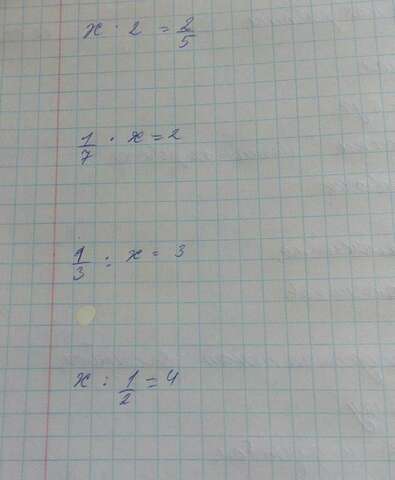 x · 2 = 2/5
1/7 · x = 2
1/3 : x = 3
x : 1/2 = 4